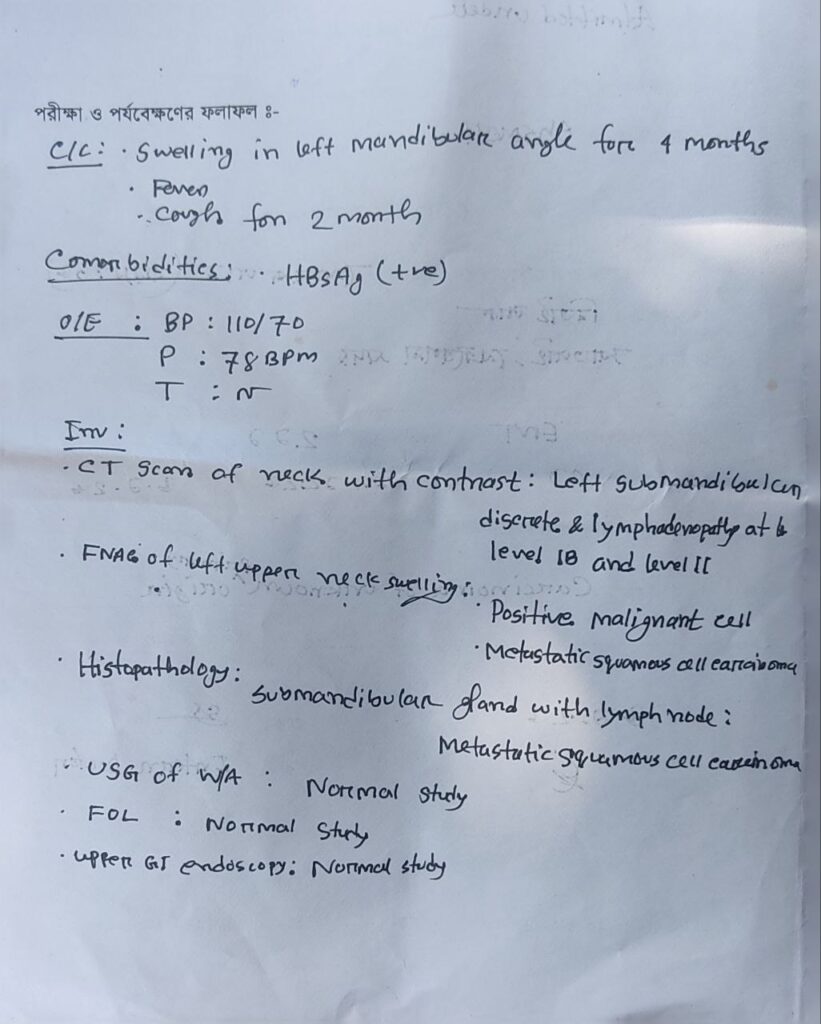 পরীক্ষা ও পর্যবেক্ষণের ফলাফল ঃ-
C/C: · Swelling in left mandibular angle for 4 months
· Fever
· Cough for 2 month
Comorbidities: · HBsAg (+ve)
O/E : BP : 110/70
P : 78 BPM
T : N
Inv :
· CT Scan of neck with contrast : Left submandibular
discrete & lymphadenopathy at
level IB and level II
· FNAC of left upper neck swelling :
· Positive malignant cell
· Metastatic squamous cell carcinoma
· Histopathology :
Submandibular gland with lymph node :
Metastatic squamous cell carcinoma
· USG of W/A : Normal study
· FOL : Normal Study
· Upper GI endoscopy : Normal study